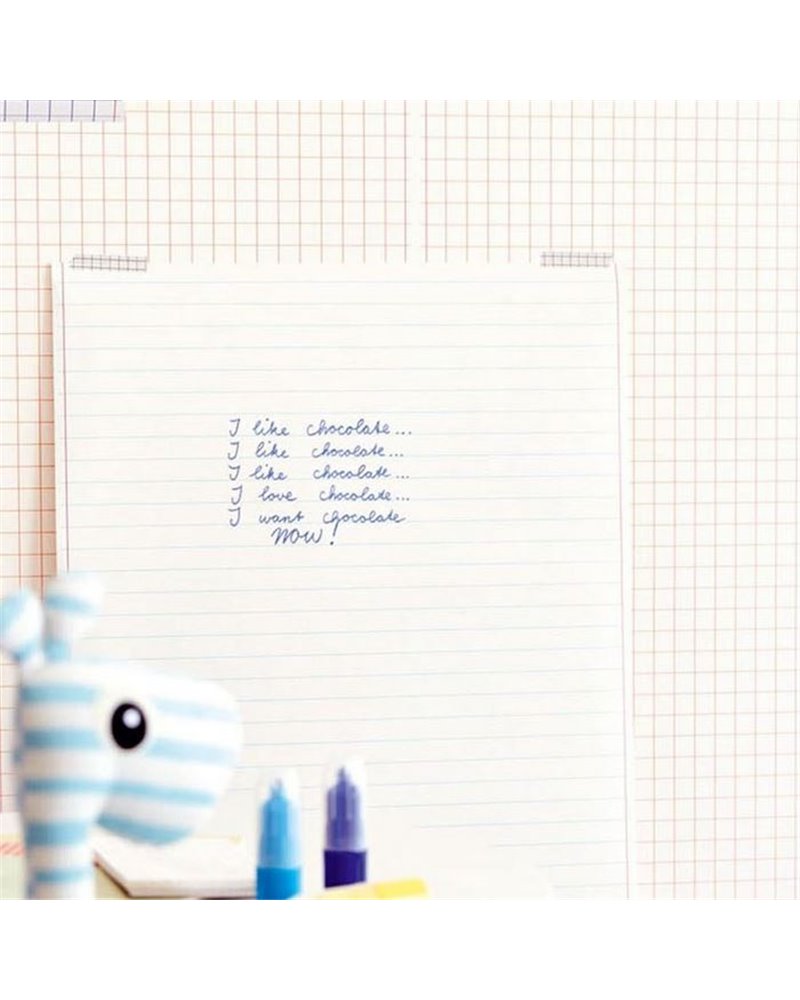 I like chocolate...
I like chocolate...
I like chocolate...
I love chocolate...
I want chocolate
NOW!